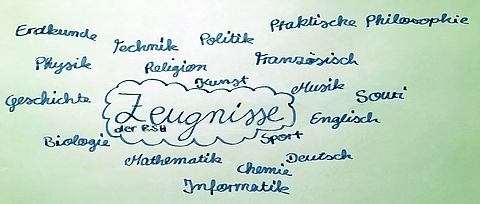 Erdkunde
Technik
Politik
Praktische Philosophie
Physik
Religion
Französisch
Kunst
Musik
Geschichte
Zeugnisse
der RSH
Sowi
Englisch
Biologie
Sport
Mathematik
Chemie
Deutsch
Informatik